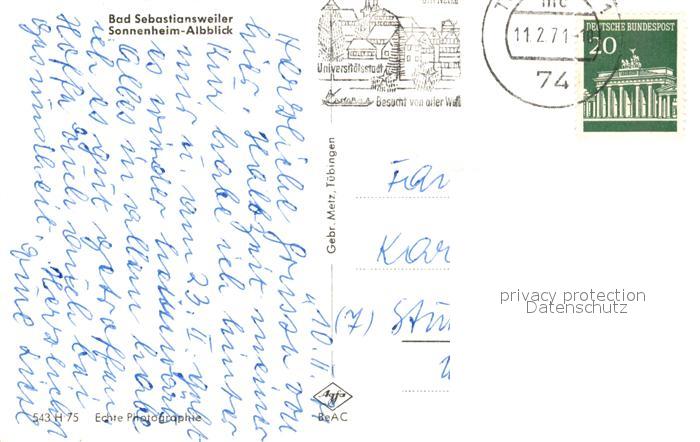 Bad Sebastiansweiler
Sonnenheim-Albblick
Herzliche Grüsse von
hier. Halbzeit meiner
Kur habe ich hinter
mir u. am 23. II. geht
es wieder heimwärts.
Alles in allem habe
ich es gut getroffen.
Hoffe Euch auch bei
Gesundheit. Herzlichst
10. II.
543 H 75 Echte Photographie
Gebr. Metz, Tübingen
Agfa
BeAC
Universitätsstadt
Besucht von aller Welt
11.2.71
74
DEUTSCHE BUNDESPOST
20
Fam
Kar
(7) Stu
privacy protection
Datenschutz